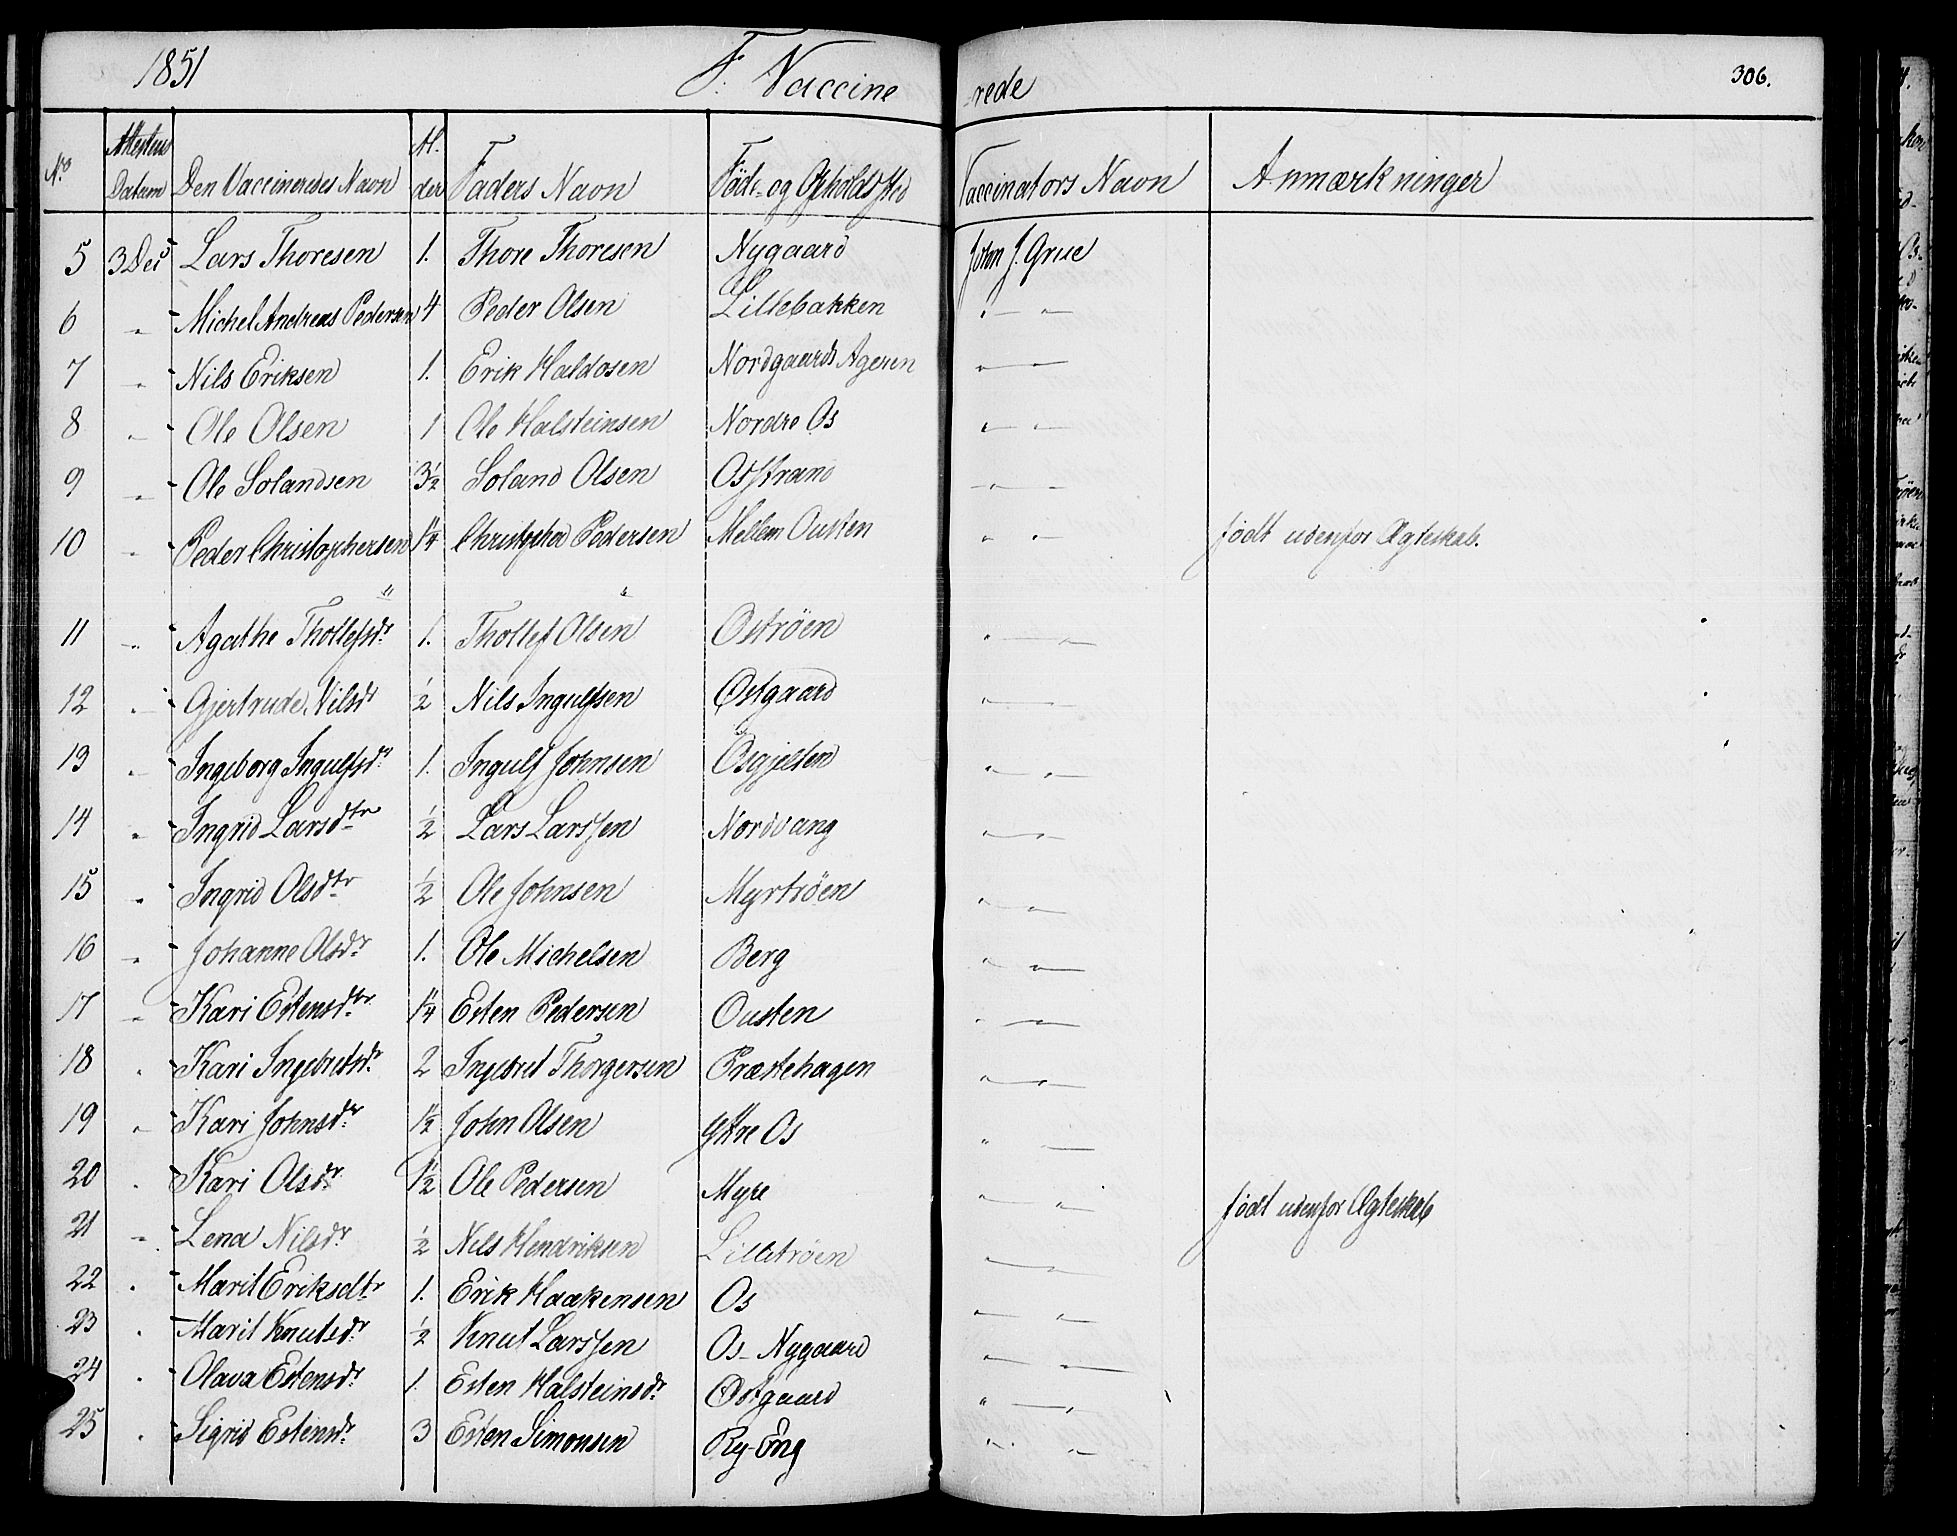 1851 F. Vaccinerede 306.
No Attestens Datum Den Vaccineredes Navn Alder Faders Navn Føde- og Opholds Sted Vaccinators Navn Anmærkninger
5 3 Dec Lars Thoresen 1. Thore Thoresen Nygaard John J. Grue
6 " Michel Andreas Pedersen 4 Peder Olsen Lillebakken " — " —
7 " Nils Eriksen 1. Erik Haldosen Nordgaards Ageren " — " —
8 " Ole Olsen 1 Ole Halsteinsen Nordre Os " — " —
9 " Ole Solandsen 3½ Soland Olsen Osstrand " — " —
10 " Peder Christophersen 1¼ Christopher Pedersen Mellem Ousten " — " født udenfor Ægteskab.
11 " Agathe Thollefsdr. 1. Thollef Olsen Oströen " — " —
12 " Gjertrude Nilsdr ½ Nils Ingulfsen Østgaard " — " —
13 " Ingeborg Ingulfsdr. 1. Ingulf Johnsen Osgjelten " — " —
14 " Ingrid Larsdtr ½ Lars Larssen Nordvang " — " —
15 " Ingrid Olsdtr ½ Ole Johnsen Myrtröen " — " —
16 " Johanne Olsdr. 1. Ole Michelsen Berg " — " —
17 " Kari Estensdtr. 1¼ Esten Pedersen Ousten " — " —
18 " Kari Ingebretsdr. 2 Ingebret Thorgersen Præstehagen " — " —
19 " Kari Johnsdr. 1½ John Olsen Yttre Os " — " —
20 " Kari Olsdr. 1½ Ole Pedersen Myre " — " født udenfor Ægteskab
21 " Lena Nilsdr. ½ Nils Hendriksen Lilletröen " — " —
22 " Marit Eriksdtr. 1. Erik Haakensen Os " — " —
23 " Marit Knutsdr. ½ Knut Larssen Os-Nygaard " — " —
24 " Olava Estensdr. 1. Esten Halsteinsdr. Østgaard " — " —
25 " Sigrid Estensdr. 3 Esten Simonsen Ry-Eng " — " —